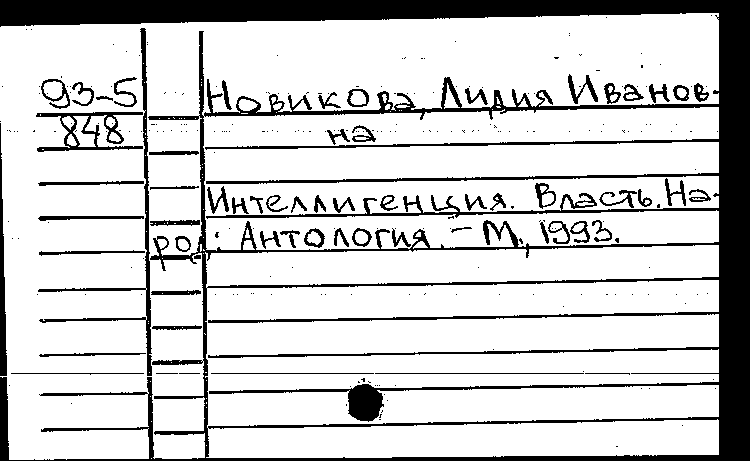 93-5 Новикова, Лидия Иванов-
848 на
Интеллигенция. Власть. На-
род: Антология. - М., 1993.